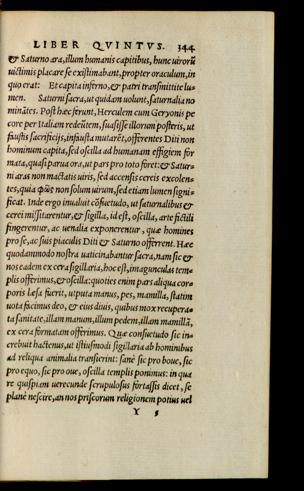 LIBER QVINTVS. 344
& Saturno ara, illum humanis capitibus, hunc uirorũ
uictimis placare se existimabant, propter oraculum, in
quo erat: Et capita inferno, & patri transmittite lu-
men. Saturni sacra, ut quidam uolunt, saturnalia no
minātes. Post hæc ferunt, Herculem cum Geryonis pe
core per Italiam redeũtem, suasisse illorum posteris, ut
faustis sacrificijs, infausta mutarēt, offerentes Diti non
hominum capita, sed oscilla ad humanam effigiem for
mata, quasi parua ora, ut pars pro toto foret: & Satur-
ni aras non mactatis uiris, sed accensis cereis excolen-
tes, quia φῶς non solum uirum, sed etiam lumen signi-
ficat. Inde ergo inualuit cõsuetudo, ut saturnalibus &
cerei missitarentur, & sigilla, id est, oscilla, arte fictili
fingerentur, ac uenalia exponerentur, quæ homines
pro se, ac suis piaculis Diti & Saturno offerrent. Hæc
quodammodo nostra uaticinabantur sacra, nam sic &
nos eadem ex cera sigillaria, hoc est, imagunculas tem-
plis offerimus, & oscilla: quoties enim pars aliqua cor-
poris læsa fuerit, utputa manus, pes, mamilla, statim
uota facimus deo, & eius diuis, quibus mox recupera-
ta sanitate, illam manum, illum pedem, illam mamillã,
ex cera formatam offerimus. Quæ consuetudo sic in-
crebuit hactenus, ut istiusmodi sigillaria ab hominibus
ad reliqua animalia transierint: sanè sic pro boue, sic
pro equo, sic pro oue, oscilla templis ponimus: in qua
re quispiam uerecunde scrupulosus fortassis dicet, se
planè nescire, an nos priscorum religionem potius uel
Y 5